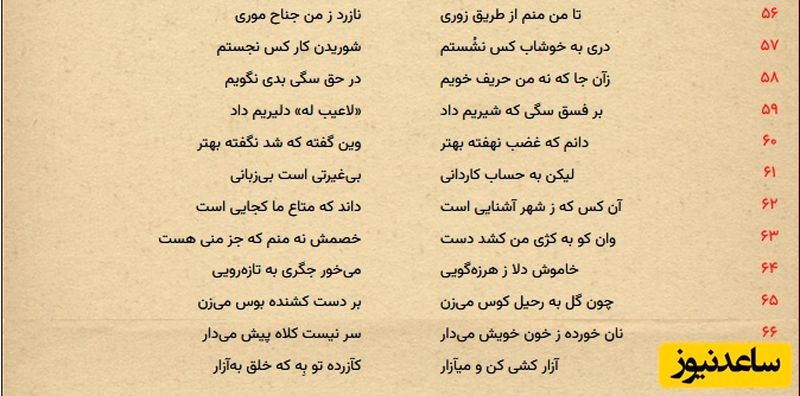 ۵۶ تا من منم از طریق زوری نازرد ز من جناح موری
۵۷ دری به خوشاب کس نشُستم شوریدن کار کس نجستم
۵۸ زآن جا که نه من حریف خویم در حق سگی بدی نگویم
۵۹ بر فسق سگی که شیریم داد «لاعیب له» دلیریم داد
۶۰ دانم که غضب نهفته بهتر وین گفته که شد نگفته بهتر
۶۱ لیکن به حساب کاردانی بی‌غیرتی است بی‌زبانی
۶۲ آن کس که ز شهر آشنایی است داند که متاع ما کجایی است
۶۳ وان کو به کژی من کشد دست خصمش نه منم که جز منی هست
۶۴ خاموش دلا ز هرزه‌گویی می‌خور جگری به تازه‌رویی
۶۵ چون گل به رحیل کوس می‌زن بر دست کشنده بوس می‌زن
۶۶ نان خورده ز خون خویش می‌دار سر نیست کلاه پیش می‌دار
آزار کشی کن و میآزار کآزرده تو بِه که خلق به‌آزار
ساعدنیوز